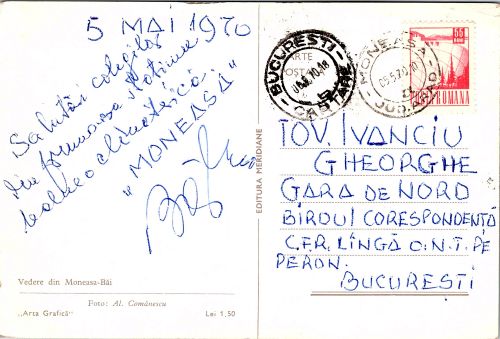 5 MAI 1970
Salutări colegilor
din frumoasa stațiune
balneoclimaterică
"MONEASA"
Vedere din Moneasa-Băi
Foto: Al. Comănescu
„Arta Grafică“
Lei 1,50
EDITURA MERIDIANE
CARTE
POSTALĂ
BUCUREȘTI
CARTARE
MONEASA
05.5.70
JUD. ARAD
POSTA ROMANA
TOV. IVANCIU
GHEORGHE
GARA DE NORD
BIROUL CORESPONDENȚĂ
C.F.R. LÎNGĂ O.N.T. PE
PERON.
BUCUREȘTI